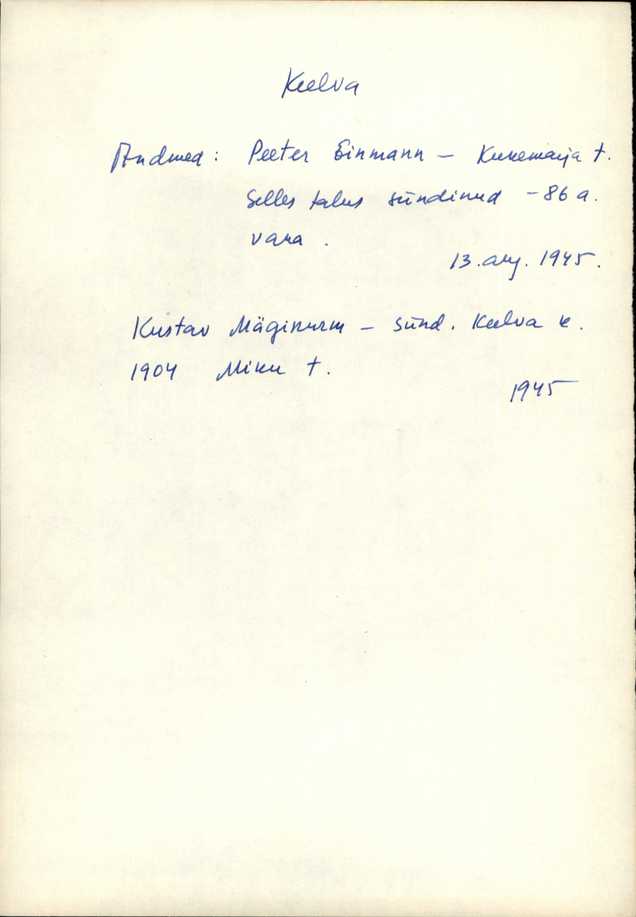 Kulva
Andmed: Peeter Einmann – Kukemarja t.
Selles talus sündinud – 86 a.
vana.
13. aug. 1945.
Kustav Mäginurm – sünd. Kulva k.
1904 Miku t.
1945